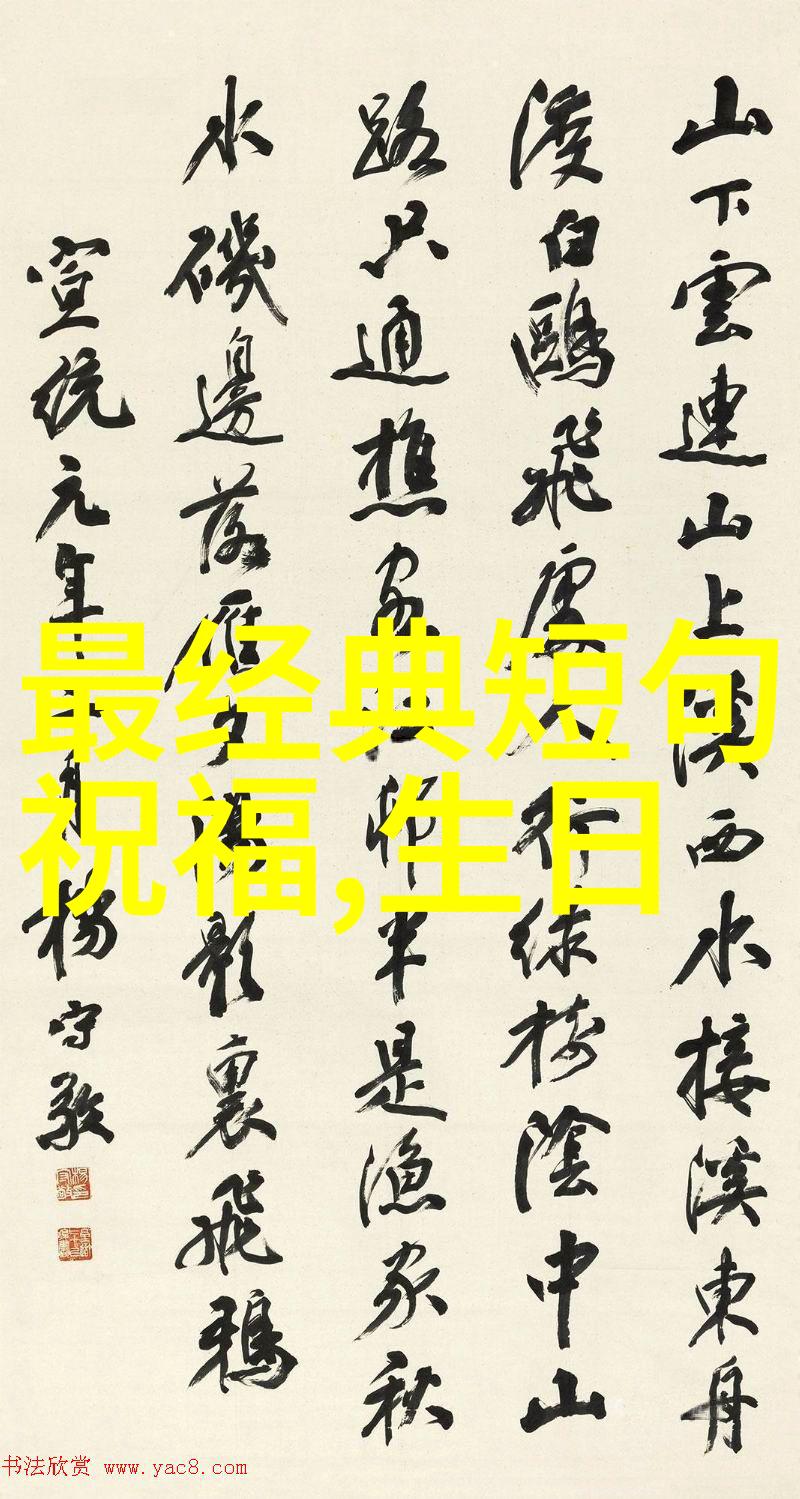 山下雲連山上溪西水接溪東舟
渡白鷗飛處人行緑樹陰中山
路只通樵客江邨半是漁家秋
水磯邊落雁夕陽影裏飛鴉
宣統元年月楊守敬
最经典短句
祝福,生日
书法欣赏 www.yac8.com